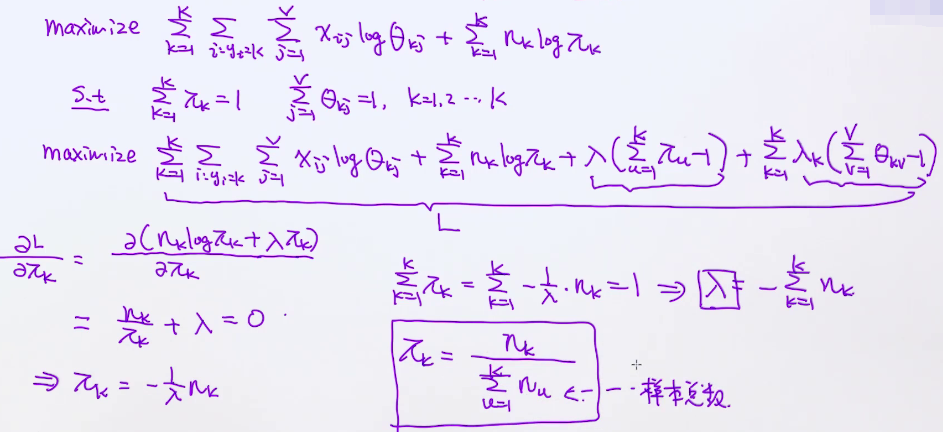 maximize $\sum_{k=1}^{K} \sum_{i:y_i=k} \sum_{j=1}^{V} x_{ij} \log \theta_{kj} + \sum_{k=1}^{K} n_k \log \pi_k$
s.t $\sum_{k=1}^{K} \pi_k = 1 \quad \sum_{j=1}^{V} \theta_{kj} = 1, \ k=1,2 \cdots K$
maximize $\sum_{k=1}^{K} \sum_{i:y_i=k} \sum_{j=1}^{V} x_{ij} \log \theta_{kj} + \sum_{k=1}^{K} n_k \log \pi_k + \lambda (\sum_{u=1}^{K} \pi_u - 1) + \sum_{k=1}^{K} \lambda_k (\sum_{v=1}^{V} \theta_{kv} - 1)$
L
$\frac{\partial L}{\partial \pi_k} = \frac{\partial (n_k \log \pi_k + \lambda \pi_k)}{\partial \pi_k}$
$= \frac{n_k}{\pi_k} + \lambda = 0$
$\Rightarrow \pi_k = -\frac{1}{\lambda} n_k$
$\sum_{k=1}^{K} \pi_k = \sum_{k=1}^{K} -\frac{1}{\lambda} \cdot n_k = 1 \Rightarrow \lambda = -\sum_{k=1}^{K} n_k$
$\pi_k = \frac{n_k}{\sum_{u=1}^{K} n_u}$ ← -- 样本总数